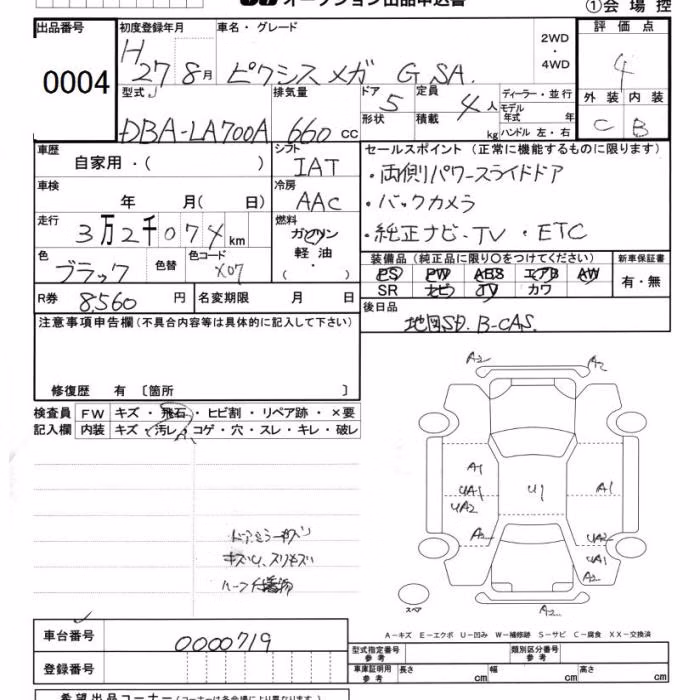 オークション出品申込書
①会場控
出品番号 0004
初度登録年月 H27 8月
車名・グレード ピクシスメガ G SA.
2WD・4WD
評価点 4
外装 C 内装 B
型式 DBA-LA700A
排気量 660 cc
ドア 5 形状
定員 4人 積載 kg
ディーラー・並行
モデル年式 年
ハンドル 左・右
車歴 自家用・( )
シフト IAT
車検 年 月( 日)
冷房 AAC
走行 3万2千074km
燃料 ガソリン 軽油・( )
色 ブラック 色替 色コード X07
R券 8,560円 名変期限 月 日
セールスポイント(正常に機能するものに限ります)
・両側パワースライドドア
・バックカメラ
・純正ナビ、TV ・ETC
装備品(純正品に限り○をつけてください) 新車保証書
PS PW ABS エアB AW 有・無
SR ナビ TV カワ
後日品 地図SD. B-CAS.
注意事項申告欄(不具合内容等は具体的に記入して下さい)
修復歴 有 〔箇所 〕
検査員 FW キズ・飛石・ヒビ割・リペア跡・×要
記入欄 内装 キズ・汚レ・コゲ・穴・スレ・キレ・破レ
A2 A2
A1 UA1 UA2 U1 A1
A2 UA2 UA1 A2
A2
スペア
A-キズ E-エクボ U-凹み W-補修跡 S-サビ C-腐食 XX-交換済
車台番号 0000719
登録番号
型式指定番号 参考 類別区分番号 参考
車庫証明用 参考 長さ cm 幅 cm 高さ cm
希望出品コーナー(コーナーは各会場により異なります)